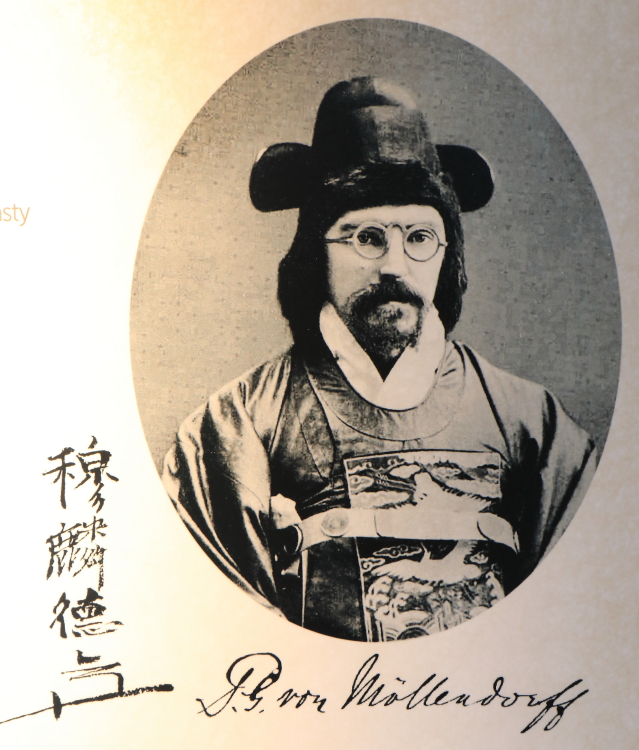 asty
穆麟德
P.G. von Möllendorff